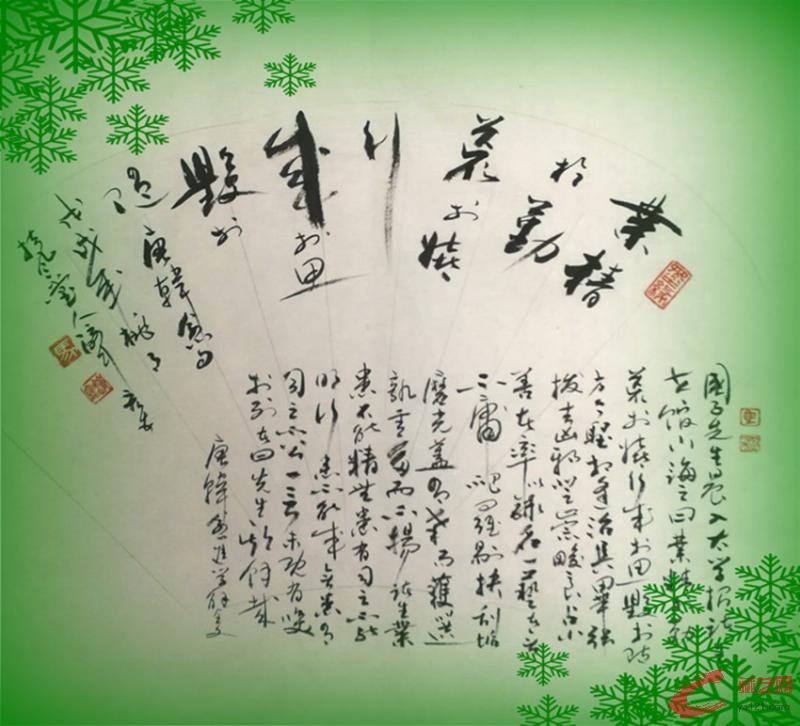 業精
於勤
荒於嬉
行
成於思
毀於
隨 唐韓愈句
戊戌年桃月
國子先生晨入太學招諸生
立館下誨之曰業精於勤
荒於嬉行成於思毀於隨
方今聖相逢治具畢張
拔去凶邪登崇畯良占小
善者率以錄名一藝者無
不庸爬羅剔抉刮垢
磨光蓋有幸而獲選
孰云多而不揚諸生業
患不能精無患有司之不能
明行患不能成無患有
司之不公言未既有
於列者曰先生欺余哉
唐韓愈進學解